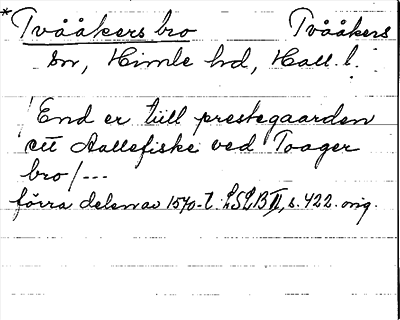 *Tvååkers bro Tvååkers
sn, Himle hd, Hall. l.
/End er tiill prestegaarden
ett Aallefiske ved Toager
bro/---
förra delen av 1570-t. LSLB II, s. 422. orig.